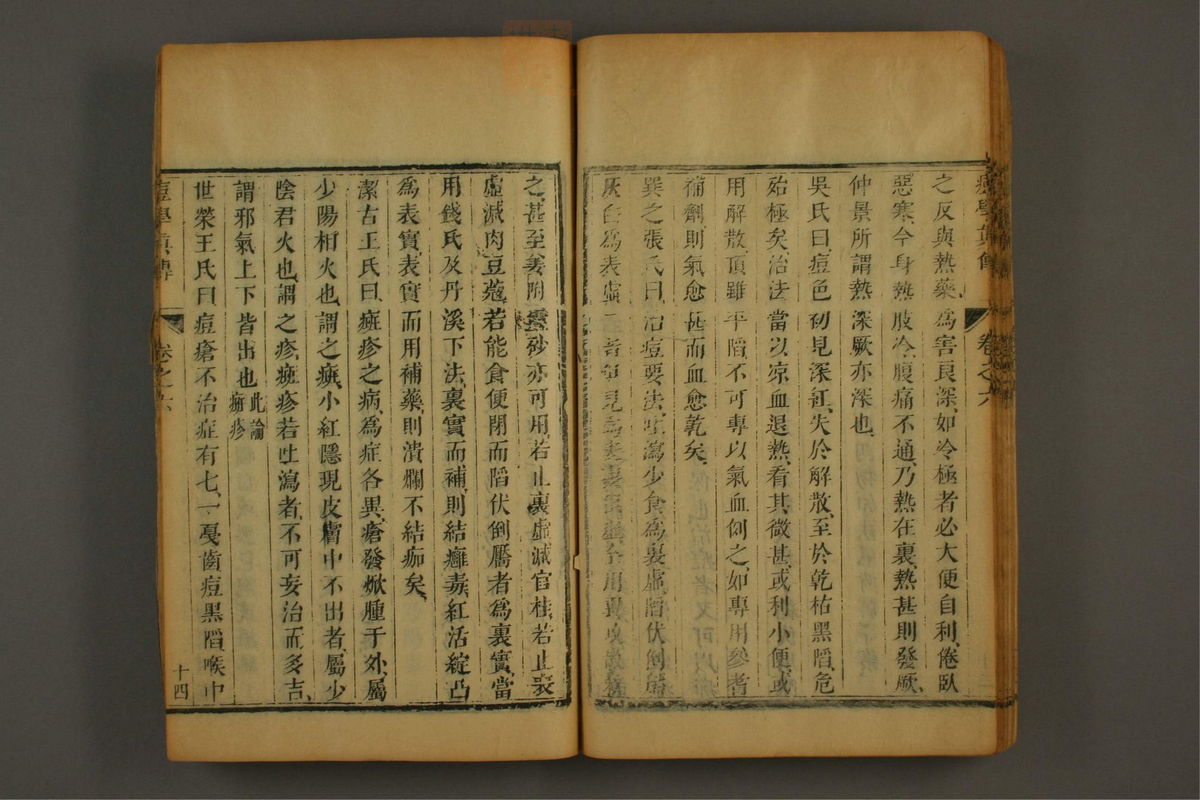 痘學眞傳 卷之六
之反與熱藥爲害艮深如冷極者必大便自利倦臥
惡寒今身熱肢冷腹痛不通乃熱在裏熱甚則發厥
仲景所謂熱深厥亦深也
吳氏曰痘色初見深紅失於解散至於乾枯黑陷危
殆極矣治法當以凉血退熱看其微甚或利小便或
用解散頂雖平陷不可專以氣血例之如專用參耆
補劑則氣愈甚而血愈乾矣
巽之張氏曰治痘要法吐瀉少食爲裏虛陷伏倒靨
灰白爲表虛二者
之甚至姜附靈砂亦可用若止裏虛減官桂若止表
虛減肉豆蔻若能食便閉而陷伏倒靨者爲裏實當
用錢氏及丹溪下法裏實而補則結癰毒紅活綻凸
爲表實表實而用補藥則潰爛不結痂矣
潔古王氏曰癍疹之病爲症各異瘡發焮腫于外屬
少陽相火也謂之癍小紅隱現皮膚中不出者屬少
陰君火也謂之疹癍疹若吐瀉者不可妄治而多吉
謂邪氣上下皆出也此論
癍疹
世榮王氏曰痘瘡不治症有七一戞齒痘黑陷喉中
痘學眞傳 卷之六 十四